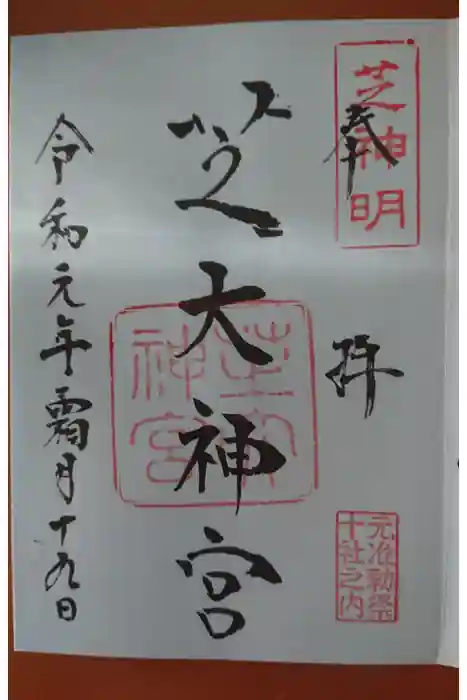 奉拝
芝神明
元准勅祭
十社之内
芝大神宮
芝大
神宮
令和元年霜月十九日